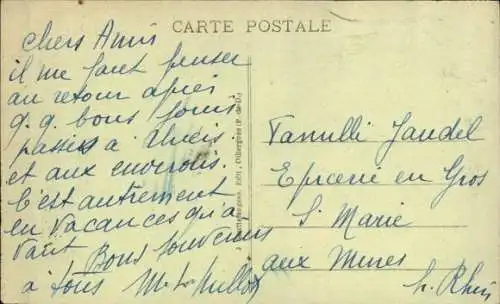 CARTE POSTALE
Chers Amis
il me faut penser
au retour après
q.q. bons jours
passés à Thiers
et aux environs.
C'est autrement
en vacances qu'a
Vaut Bons Souvenirs
à tous M. L.
Famille Jaudel
Epicerie en Gros
S. Marie
aux Mines
h. Rhin